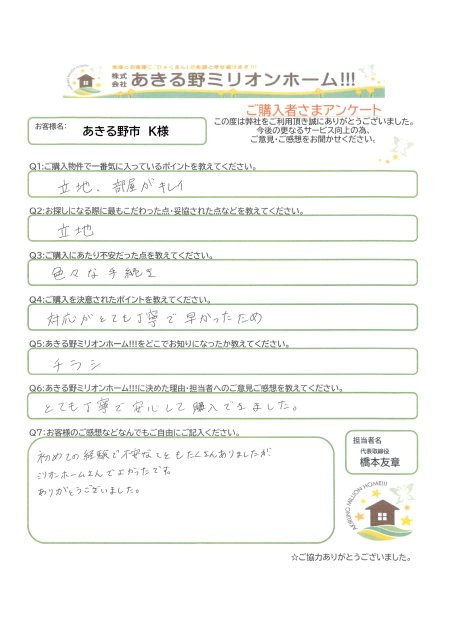 地域とお客様に「ひゃくまん」の笑顔と幸せ届けます!!!
株式会社 あきる野ミリオンホーム!!!
ご購入者さまアンケート
お客様名: あきる野市 K様
この度は弊社をご利用頂き誠にありがとうございました。
今後の更なるサービス向上の為、
ご意見・ご感想をお聞かせください。
Q1:ご購入物件で一番気に入っているポイントを教えてください。
立地、部屋がキレイ
Q2:お探しになる際に最もこだわった点・妥協された点などを教えてください。
立地
Q3:ご購入にあたり不安だった点を教えてください。
色々な手続き
Q4:ご購入を決意されたポイントを教えてください。
対応がとても丁寧で早かったため
Q5:あきる野ミリオンホーム!!!をどこでお知りになったか教えてください。
チラシ
Q6:あきる野ミリオンホーム!!!に決めた理由・担当者へのご意見ご感想を教えてください。
とても丁寧で安心して購入できました。
Q7:お客様のご感想などなんでもご自由にご記入ください。
初めての経験で不安なこともたくさんありましたが
ミリオンホームさんでよかったです。
ありがとうございました。
担当者名
代表取締役
橋本友章
AKIRUNO MILLION HOME!!!
☆ご協力ありがとうございました。